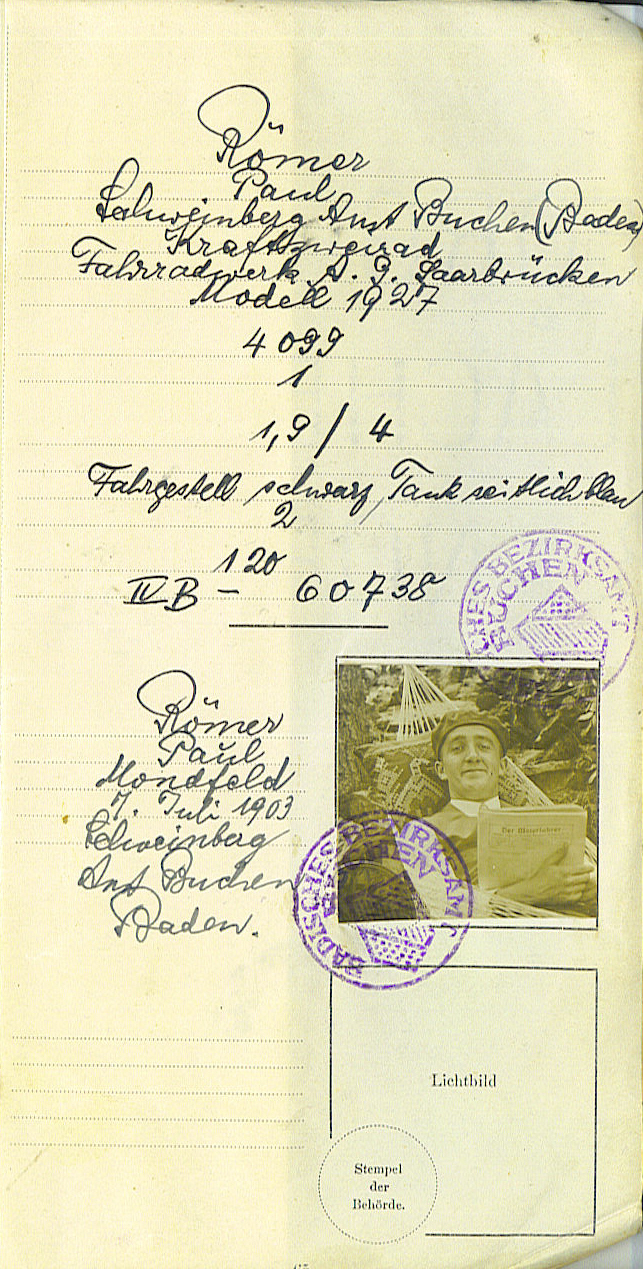 Römer
Paul
Schweinberg Amt Buchen (Baden)
Kraftzweirad
Fahrradwerk A. G. Saarbrücken
Modell 1927
4099
1
1,9 / 4
Fahrgestell schwarz, Tank seitlich blau
2
120
IV B - 60738
BADISCHES BEZIRKSAMT
BUCHEN
Römer
Paul
Mondfeld
7. Juli 1903
Schweinberg
Amt Buchen
Baden.
Der
BADISCHES BEZIRKSAMT
BUCHEN
Lichtbild
Stempel
der
Behörde.